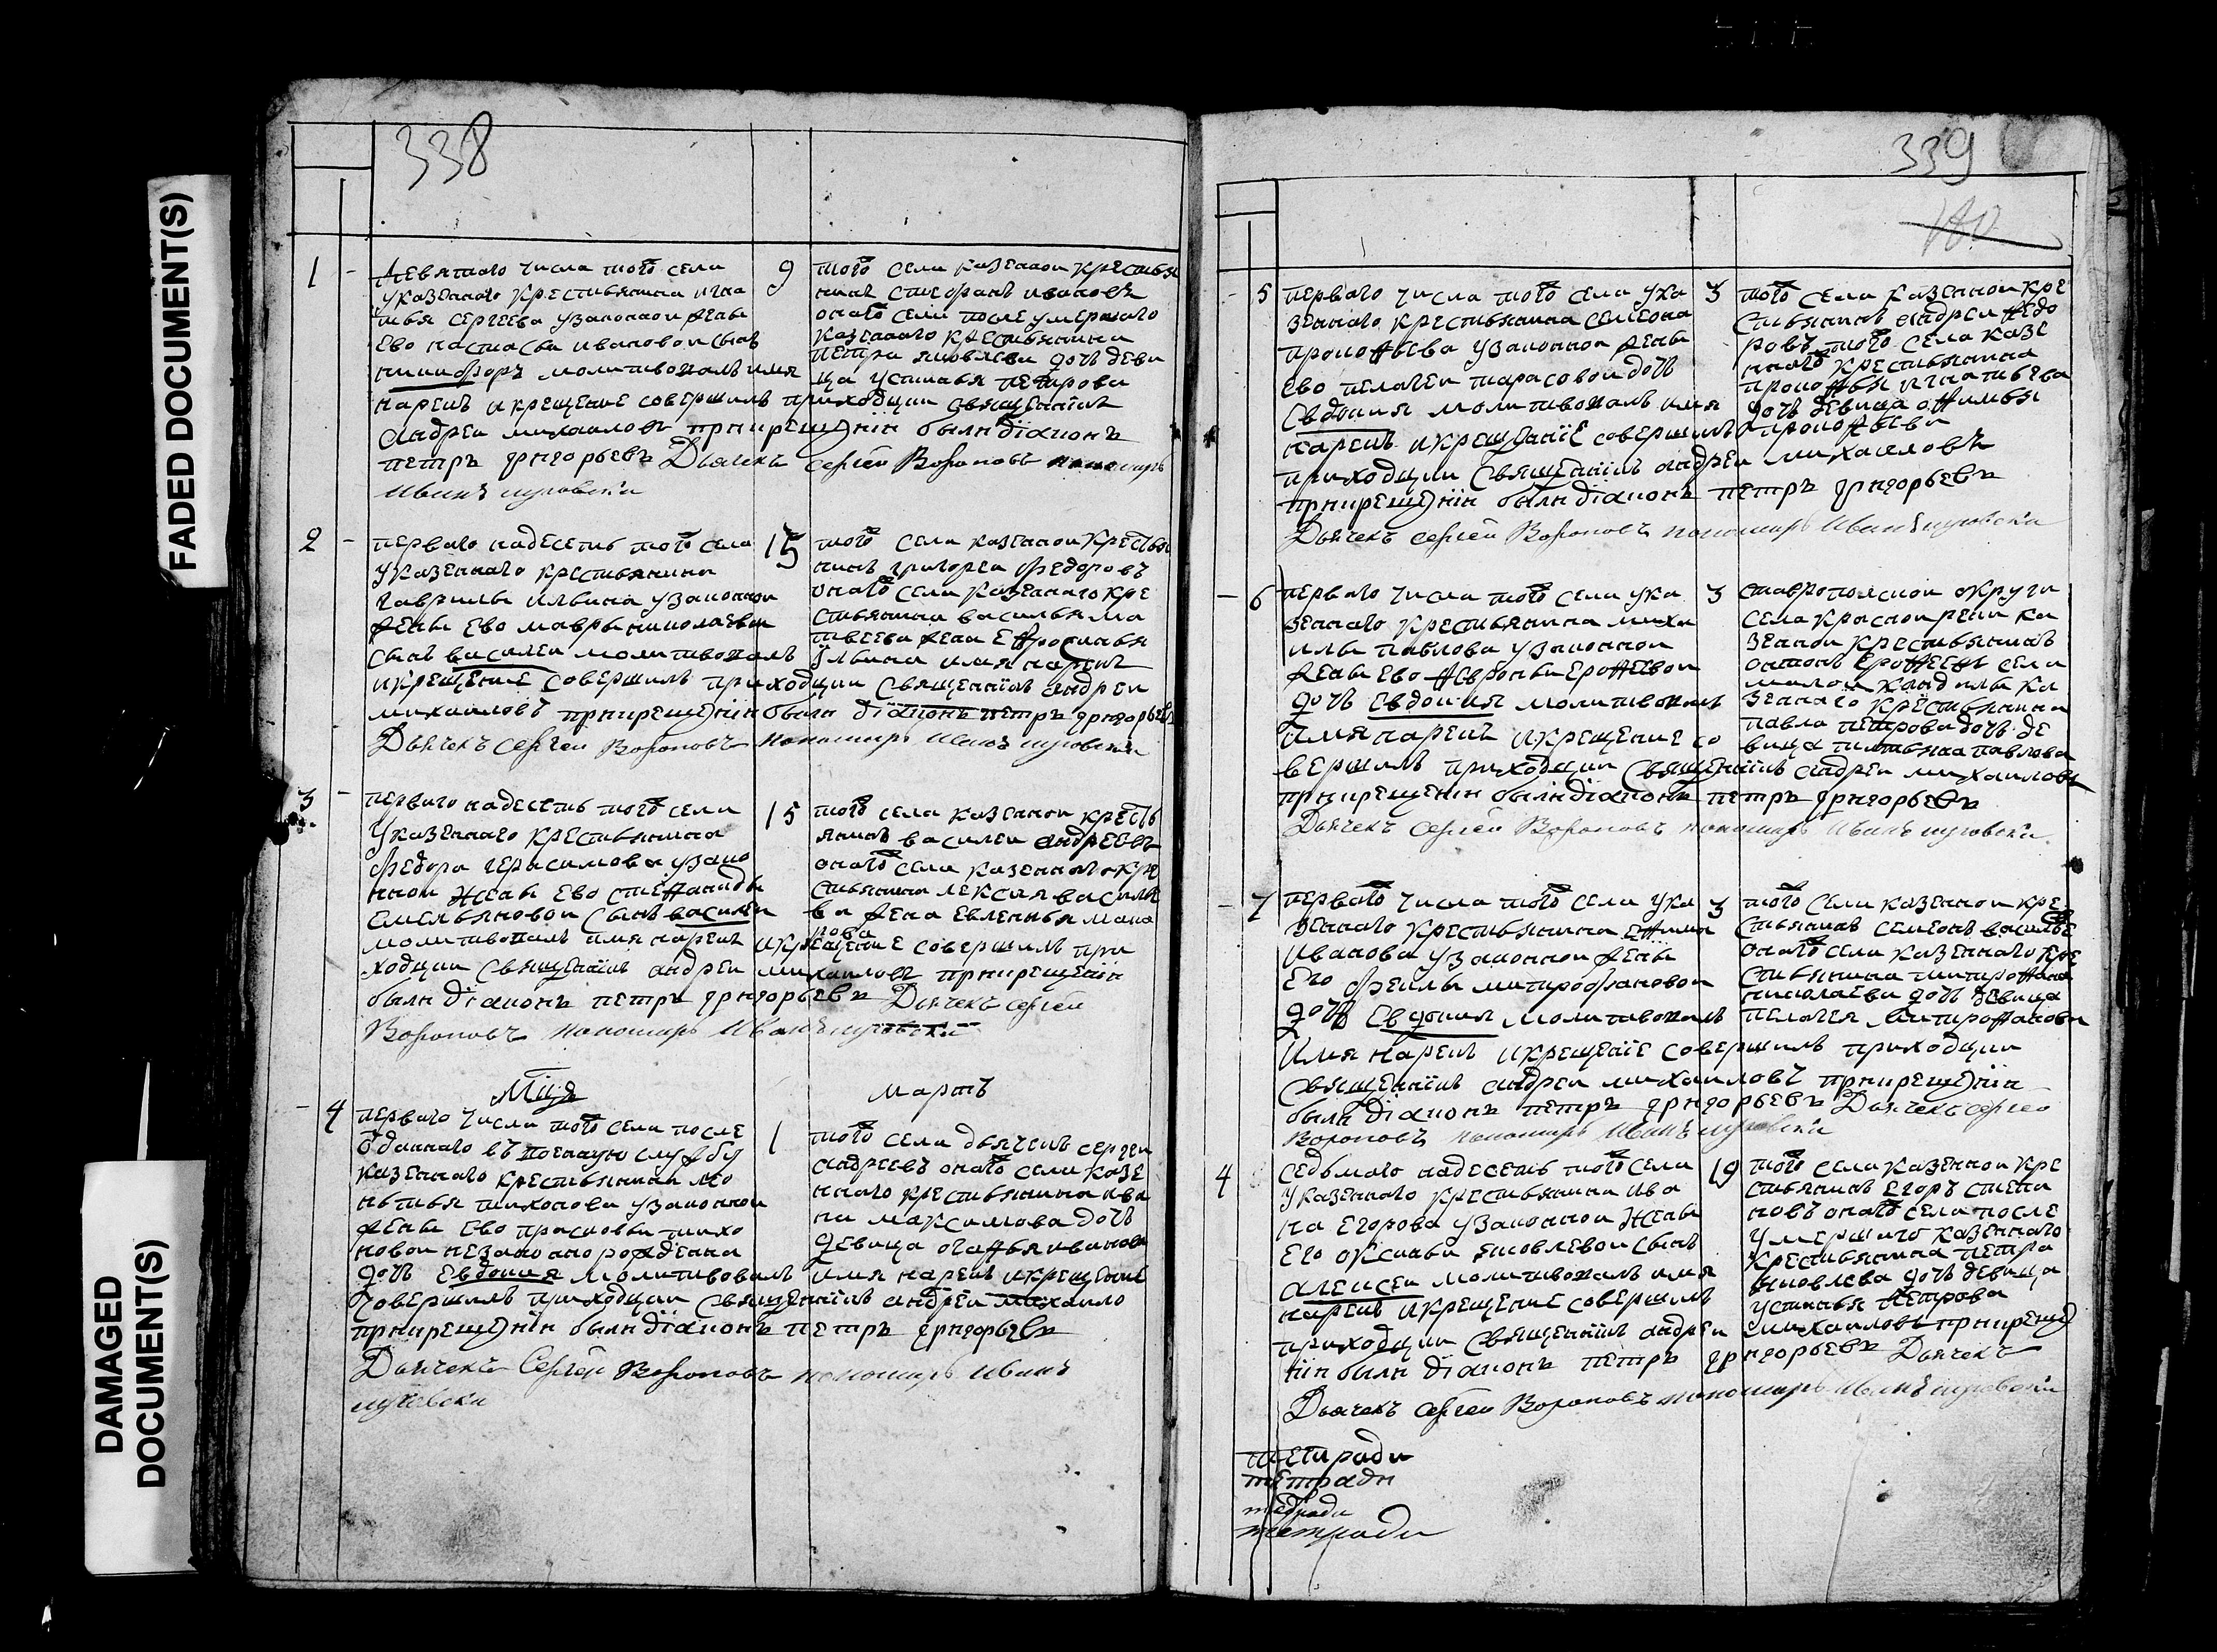 FADED DOCUMENT(S)
DAMAGED
DOCUMENT(S)
338
1
девятого числа того села
указенного крестьянина игна
тья сергеева узаконной жены
ево настасьи ивановой сынъ
никифоръ молитвовалъ имя
нарекъ и крещение совершилъ приходцки священникъ
андреи михаиловъ при крещении были диаконъ
петръ григорьевъ Дьячекъ сергей Вороновъ пономарь
Иванъ
9
того села казенной крестья
нинъ стефанъ ивановъ
оного села после умершаго
казенного крестьянина
петра яковлева дочь деви
ца устинья петрова
2
первого надесеть того села
указенного крестьянина
гаврилы ильина узаконной
жены ево мавры николаевой
сынъ василеи молитвовалъ
и крещение совершилъ приходцки священникъ андреи
михаиловъ при крещении были диаконъ петръ григорьевъ
Дьячекъ Сергей Вороновъ пономарь Иванъ
15
того села казенной крестья
нинъ григореи федоровъ
оного села казенного кре
стьянина василья ма
твеева жена ефросинья
ильина имя нарекъ
3
первого надесеть того села
указенного крестьянина
федора герасимова узако
нной жены ево степаниды
емельяновой сынъ василеи
молитвовалъ имя нарекъ и крещение совершилъ при
ходцки священникъ андреи михаиловъ при крещении
были диаконъ петръ григорьевъ Дьячекъ Сергей
Вороновъ пономарь Иванъ
15
того села казенной кресть
янинъ василеи андреевъ
оного села казенного кре
стьянина лексея василье
ва жена евленья
Мця мартъ
4
первого числа того села после
отданного въ военную службу
казенного крестьянина
тихонова узаконной
жены ево прасковьи тихо
новой незаконорожденна
дочь Евдокия молитвовалъ имя нарекъ и крещение
совершилъ приходцки священникъ андреи михаило
при крещении были диаконъ петръ григорьевъ
Дьячекъ Сергей Вороновъ пономарь Иванъ
1
того села дьячекъ сергеи
андреевъ оного села казе
нного крестьянина ива
на максимова дочь
девица агафья иванова
339
5
первого числа того села ука
зенного крестьянина семена
прокофьева узаконной жены
ево пелагеи тарасовой дочь
Евдокия молитвовалъ имя
нарекъ и крещение совершилъ
приходцки священникъ андреи михаиловъ
при крещении были диаконъ петръ григорьевъ
Дьячекъ Сергей Вороновъ пономарь Иванъ
3
того села казенной кре
стьянинъ андреи федо
ровъ того села казе
нного крестьянина
прокофья игнатьева
дочь девица офимья
прокофьева
6
первого числа того села ука
зенного крестьянина миха
илы павлова узаконной
жены ево февроньи ерофеевой
дочь Евдокия молитвовалъ
имя нарекъ и крещение со
вершилъ приходцки священникъ андреи михаиловъ
при крещении были диаконъ петръ григорьевъ
Дьячекъ Сергей Вороновъ пономарь Иванъ
3
ставропольской округи
села красной реки ка
зенной крестьянинъ
антонъ ерофеевъ села
малой кандалы ка
зенного крестьянина
павла петрова дочь де
вица татьяна павлова
7
первого числа того села ука
зенного крестьянина ефима
иванова узаконной жены
его феклы митрофановой
дочь Евдокия молитвовалъ
имя нарекъ и крещение совершилъ приходцки
священникъ андреи михаиловъ при крещении
были диаконъ петръ григорьевъ Дьячекъ Сергей
Вороновъ пономарь Иванъ
3
того села казенной кре
стьянинъ семенъ василье
оного села казенного кре
стьянина митрофана
николаева дочь девица
пелагея митрофанова
4
седьмого надесеть того села
указенного крестьянина ива
на егорова узаконной жены
его оксиньи яковлевой сынъ
алексеи молитвовалъ имя
нарекъ и крещение совершилъ
приходцки священникъ андреи михаиловъ при креще
нии были диаконъ петръ григорьевъ Дьячекъ
Дьячекъ Сергей Вороновъ пономарь Иванъ
19
того села казенной кре
стьянинъ егоръ степа
новъ оного села после
умершаго казенного
крестьянина петра
яковлева дочь девица
устинья петрова
тетради
тетради
тедради
тетради